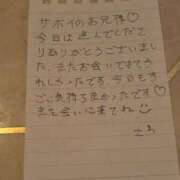 サボイのお兄様♡
今日は選んでくださ
りありがとうございまし
た。またお会いできてう
れしかったです。今日もす
ごく気持ち良かったです♡
また会いに来てね☺